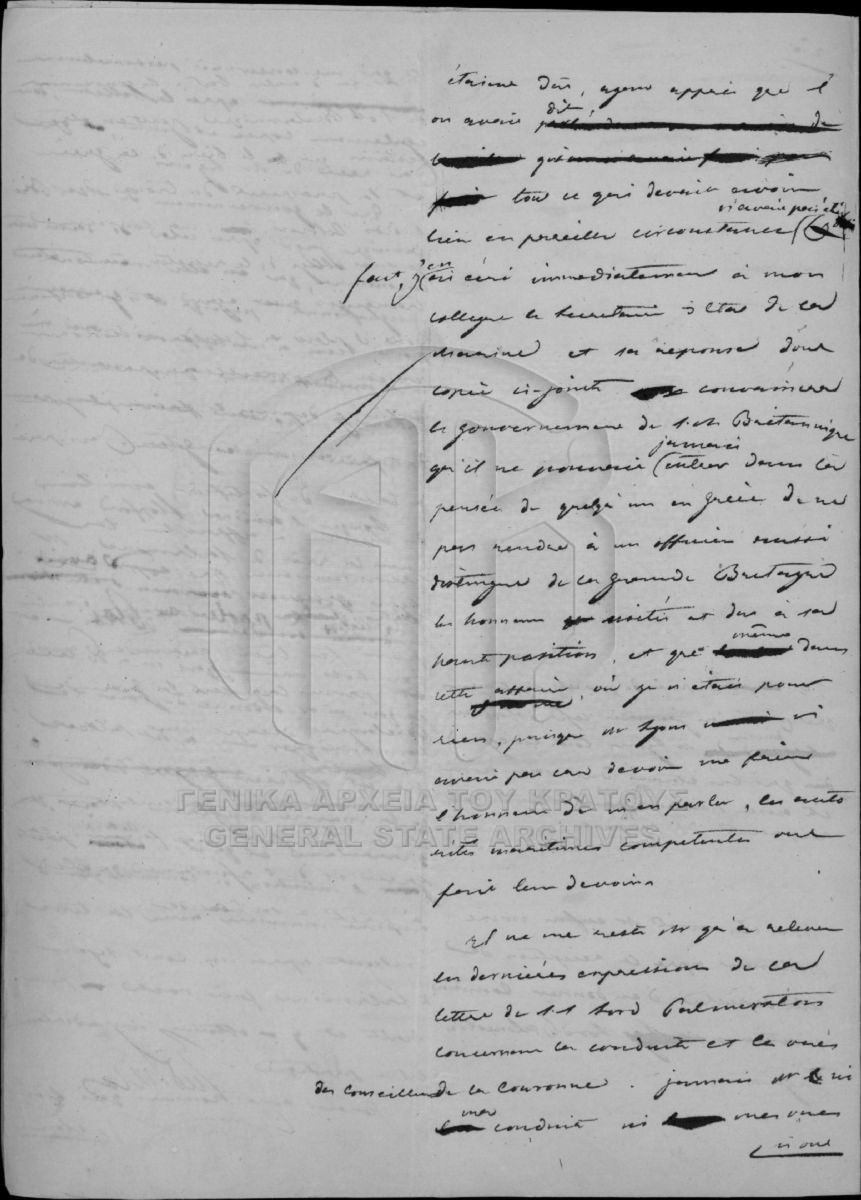 étaient dus, ayant appris que l'
on avait dit
tout ce qui devait avoir
lieu en pareille circonstance n'avait pas été
fait, j'en ai écrit immediatement à mon
collegue le Secretaire d'Etat de la
Marine et sa reponse dont
copie ci-jointe convaincra
le gouvernement de S. M. Britannique
qu'il ne pouvait jamais entrer dans la
pensée de quelqu'un en Grèce de ne
pas rendre à un officier aussi
distingué de la grande Bretagne
les honneurs usités et dus à sa
haute position, et que même dans
cette affaire, où je n'étais pour
rien, puisque Mr Lyons n'
avait pas cru devoir me faire
l'honneur de m'en parler, les auto
rités maritimes competentes ont
fait leur devoir.
ΓΕΝΙΚΑ ΑΡΧΕΙΑ ΤΟΥ ΚΡΑΤΟΥΣ
GENERAL STATE ARCHIVES
Il ne me reste Mr qu'à relever
les dernières expressions de la
lettre de Lord Palmerston
concernant la conduite et les vues
des conseillers de la Couronne. jamais Mr ni
ma conduite ni mes vues
n'ont